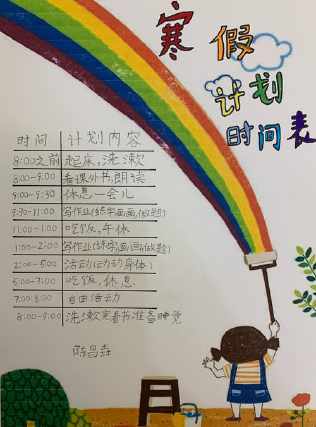 寒假
计划
时间表
时间 计划内容
8:00之前 起床,洗漱
8:00-9:00 看课外书,朗读
9:00-9:30 休息一会儿
9:30-11:00 写作业(练字画画,做题)
11:00-1:00 吃饭,午休
1:00-2:00 写作业(练字画画,做题)
2:00-5:00 活动(运动身体)
5:00-7:00 吃饭,休息
7:00-8:00 自由活动
8:00-9:00 洗漱完看书准备睡觉